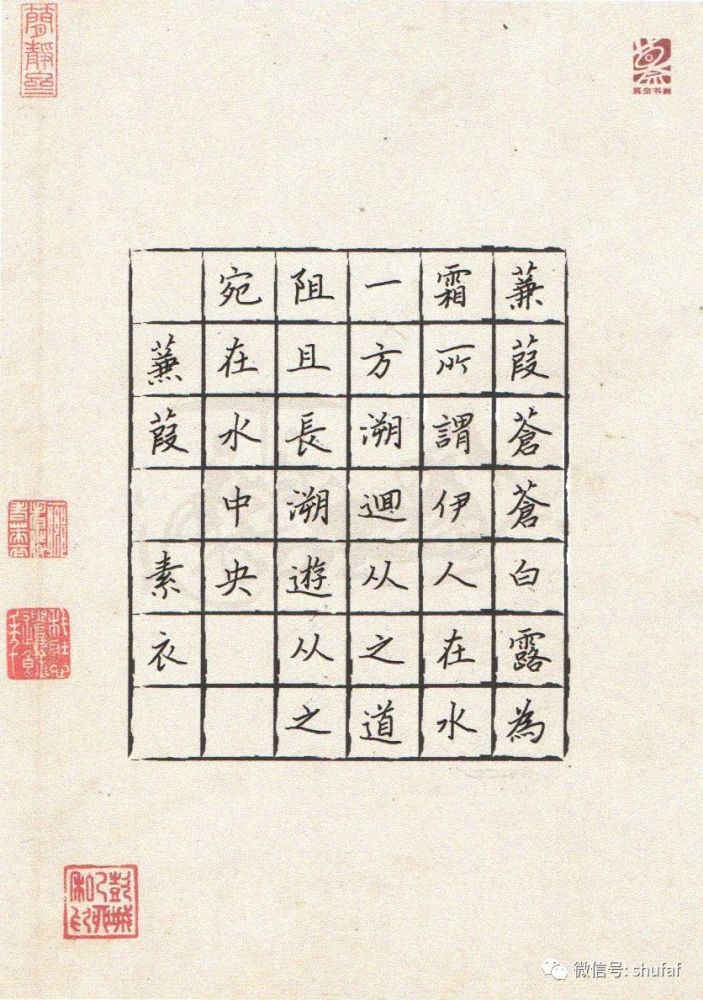 蒹葭蒼蒼白露為
霜所謂伊人在水
一方溯迴从之道
阻且長溯遊从之
宛在水中央
蒹葭 素衣
微信号: shufaf